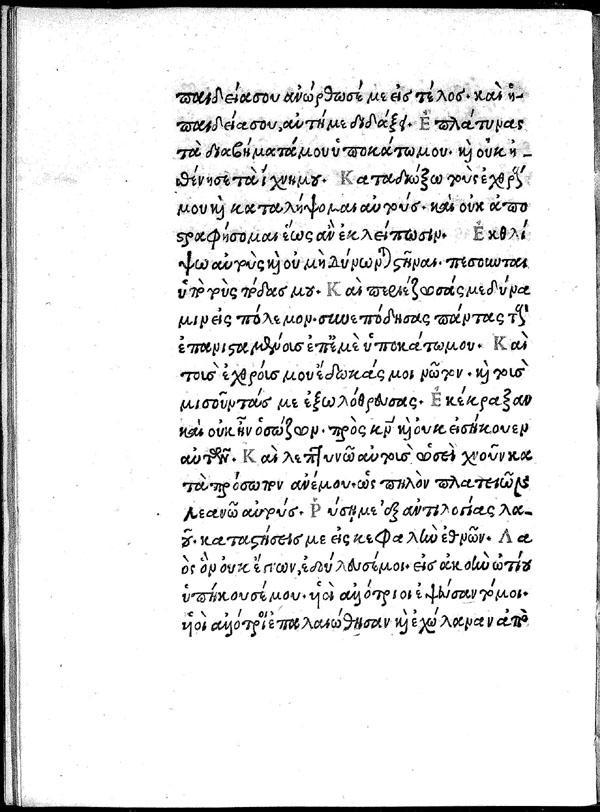 παιδείασου ἀνώρθωσέ με εἰς τέλος· καὶ ἡ-
παιδείασου, αὐτή με διδάξει· Ἐπλάτυνας
τὰ διαβήματά μου ὑποκάτω μου· καὶ οὐκ ἠ-
σθένησε τὰ ἴχνη μου· Καταδιώξω τοὺς ἐχθρούς
μου καὶ καταλήψομαι αὐτούς· καὶ οὐκ ἀπο
στραφήσομαι ἕως ἂν ἐκλείπωσιν· Ἐκθλί
ψω αὐτοὺς καὶ οὐ μὴ δύνωνται στῆναι· πεσοῦνται
ὑπὸ τοὺς πόδας μου· Καὶ περιέζωσάς με δύνα
μιν εἰς πόλεμον· συνεπόδησας πάντας τοὺς
ἐπανισταμένους ἐπ' ἐμὲ ὑποκάτω μου· Καὶ
τοὺς ἐχθρούς μου ἔδωκάς μοι νῶτον· καὶ τοὺς
μισοῦντάς με ἐξωλόθρευσας· Ἐκέκραξαν
καὶ οὐκ ἦν ὁ σώζων· πρὸς κν καὶ οὐκ εἰσήκουσεν
αὐτῶν· Καὶ λεπτυνῶ αὐτοὺς ὡσεὶ χνοῦν κα
τὰ πρόσωπον ἀνέμου· ὡς πηλὸν πλατειῶν
λεανῶ αὐτούς· Ῥύσῃ με ἐξ ἀντιλογίας λα
οῦ· καταστήσεις με εἰς κεφαλὴν ἐθνῶν· Λα
ὸς ὃν οὐκ ἔγνων, ἐδούλευσέ μοι· εἰς ἀκοὴν ὠτίου
ὑπήκουσέ μου· υἱοὶ ἀλλότριοι ἐψεύσαντό μοι·
υἱοὶ ἀλλότριοι ἐπαλαιώθησαν καὶ ἐχώλαναν ἀπὸ